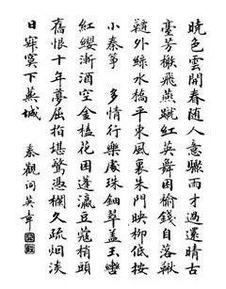 曉色雲開春隨人意驟雨才過還晴古
臺芳榭飛燕蹴紅英舞困榆錢自落鞦
韆外綠水橋平東風裏朱門映柳低按
小秦箏 多情行樂處珠鈿翠蓋玉轡
紅纓漸酒空金榼花困蓬瀛豆蔻梢頭
舊恨十年夢屈指堪驚憑欄久疏烟淡
日寂寞下蕪城
秦觀詞英章